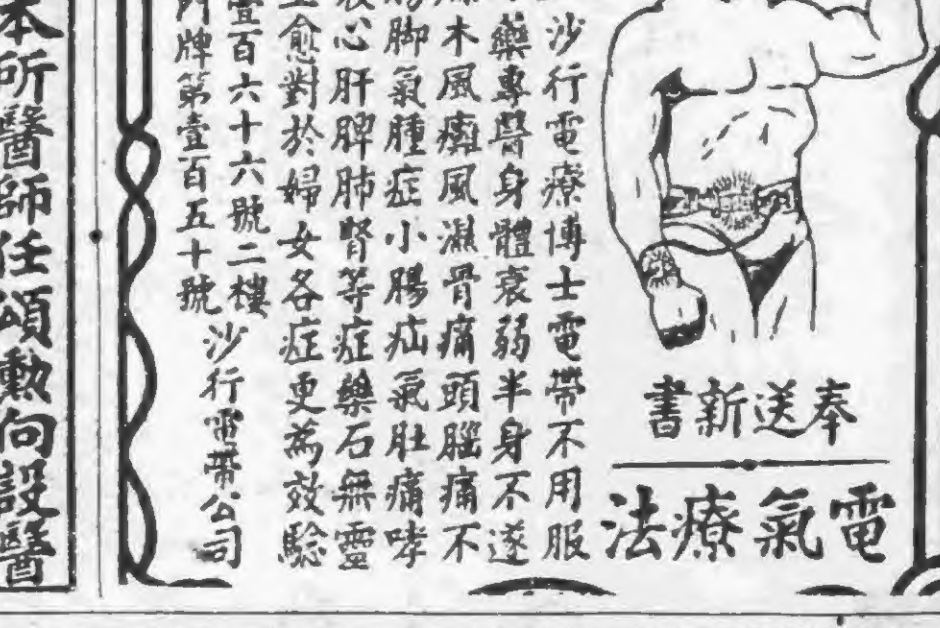 奉送新書
電氣療法
沙行電療博士電帶不用服
藥專醫身體衰弱半身不遂
木風癱風濕骨痛頭腦痛不
脚氣腫症小腸疝氣肚痛哮
心肝脾肺腎等症藥石無靈
愈對於婦女各症更為效驗
壹百六十六號二樓
門牌第壹百五十號
沙行電帶公司
本所醫師任頌勳向設醫